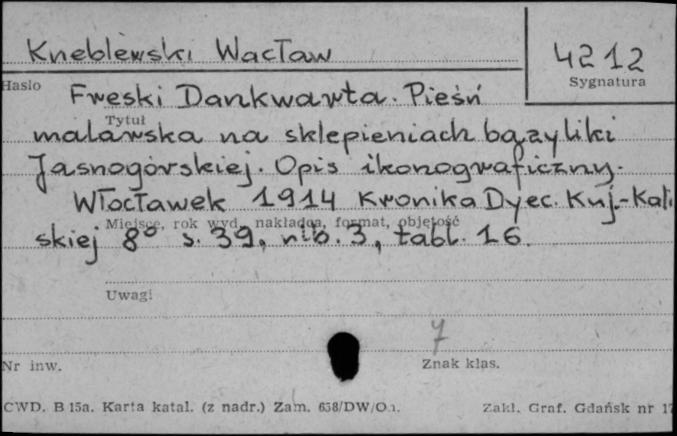 Kneblewski Wacław
4212
Hasło
Sygnatura
Freski Dankwarta. Pieśń
Tytuł
malarska na sklepieniach bazyliki
Jasnogórskiej. Opis ikonograficzny.
Włocławek 1914 Kronika Dyec. Kuj-Kali
Miejsce, rok wyd., nakładca, format, objętość
skiej 8° s. 39, nlb. 3, tabl. 16.
Uwagi
7
Nr inw.
Znak klas.
CWD. B 15a. Karta katal. (z nadr.) Zam. 658/DW/Oa.
Zakł. Graf. Gdańsk nr 17